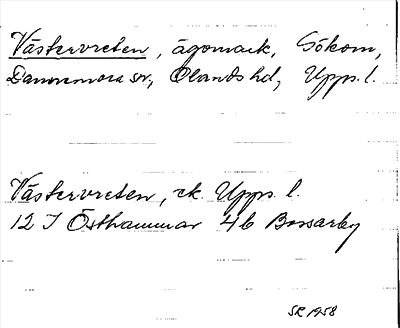 Västervreten, ägomark, Sökom,
Dannemora sn, Olands hd, Upps. l.
Västervreten, ek. Upps. l.
12 I Östhammar 4b Bossarby
SR 1958